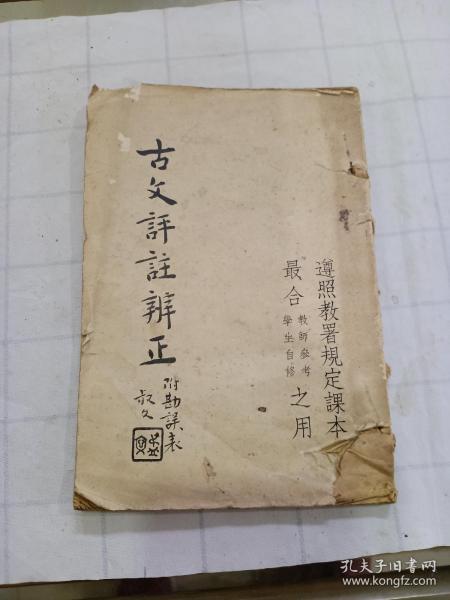 遵照教署規定課本
最合教師參考學生自修之用
古文評註辨正
附勘誤表
叔文
孔夫子旧书网
www.kongfz.com